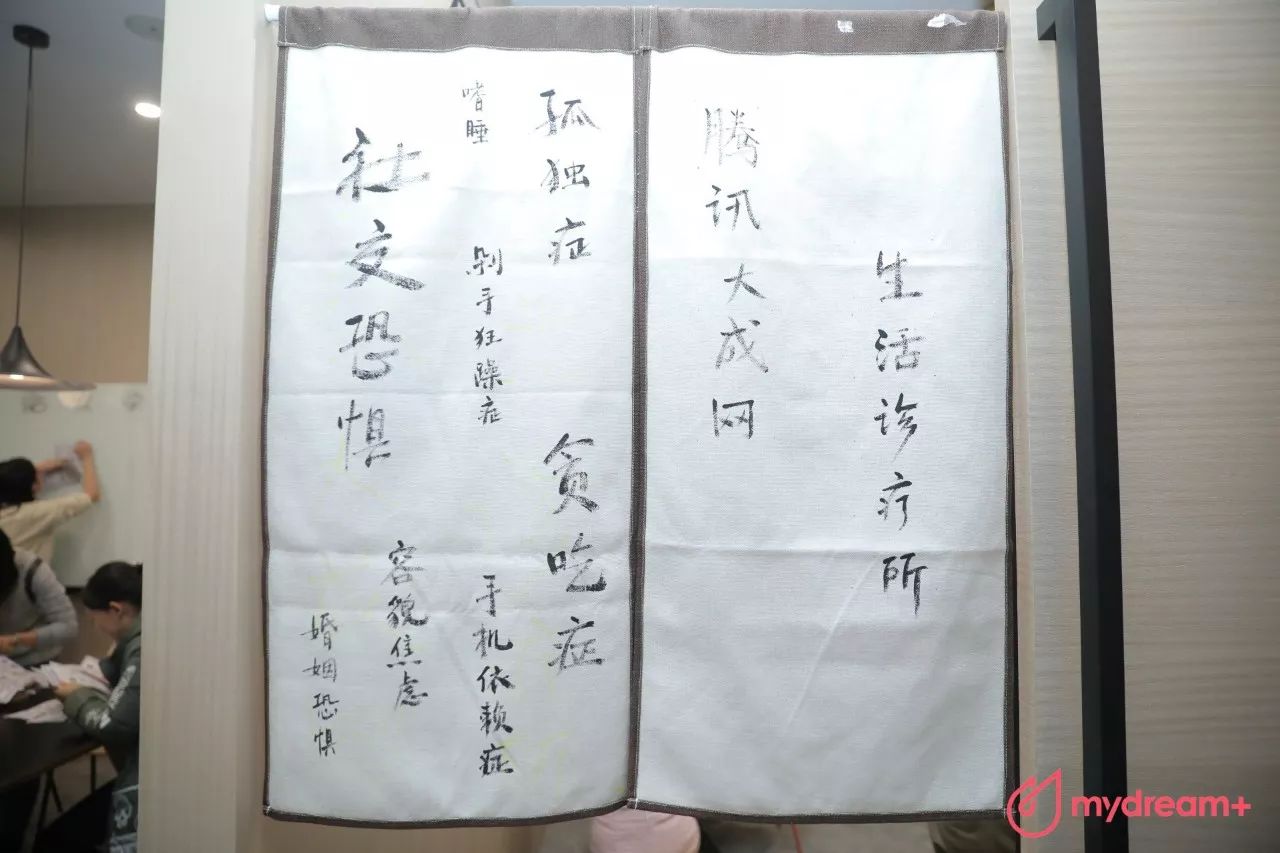 生活诊疗所
腾讯大成网
孤独症
贪吃症
嗜睡
剁手狂躁症
手机依赖症
容貌焦虑
社交恐惧
婚姻恐惧
mydream+